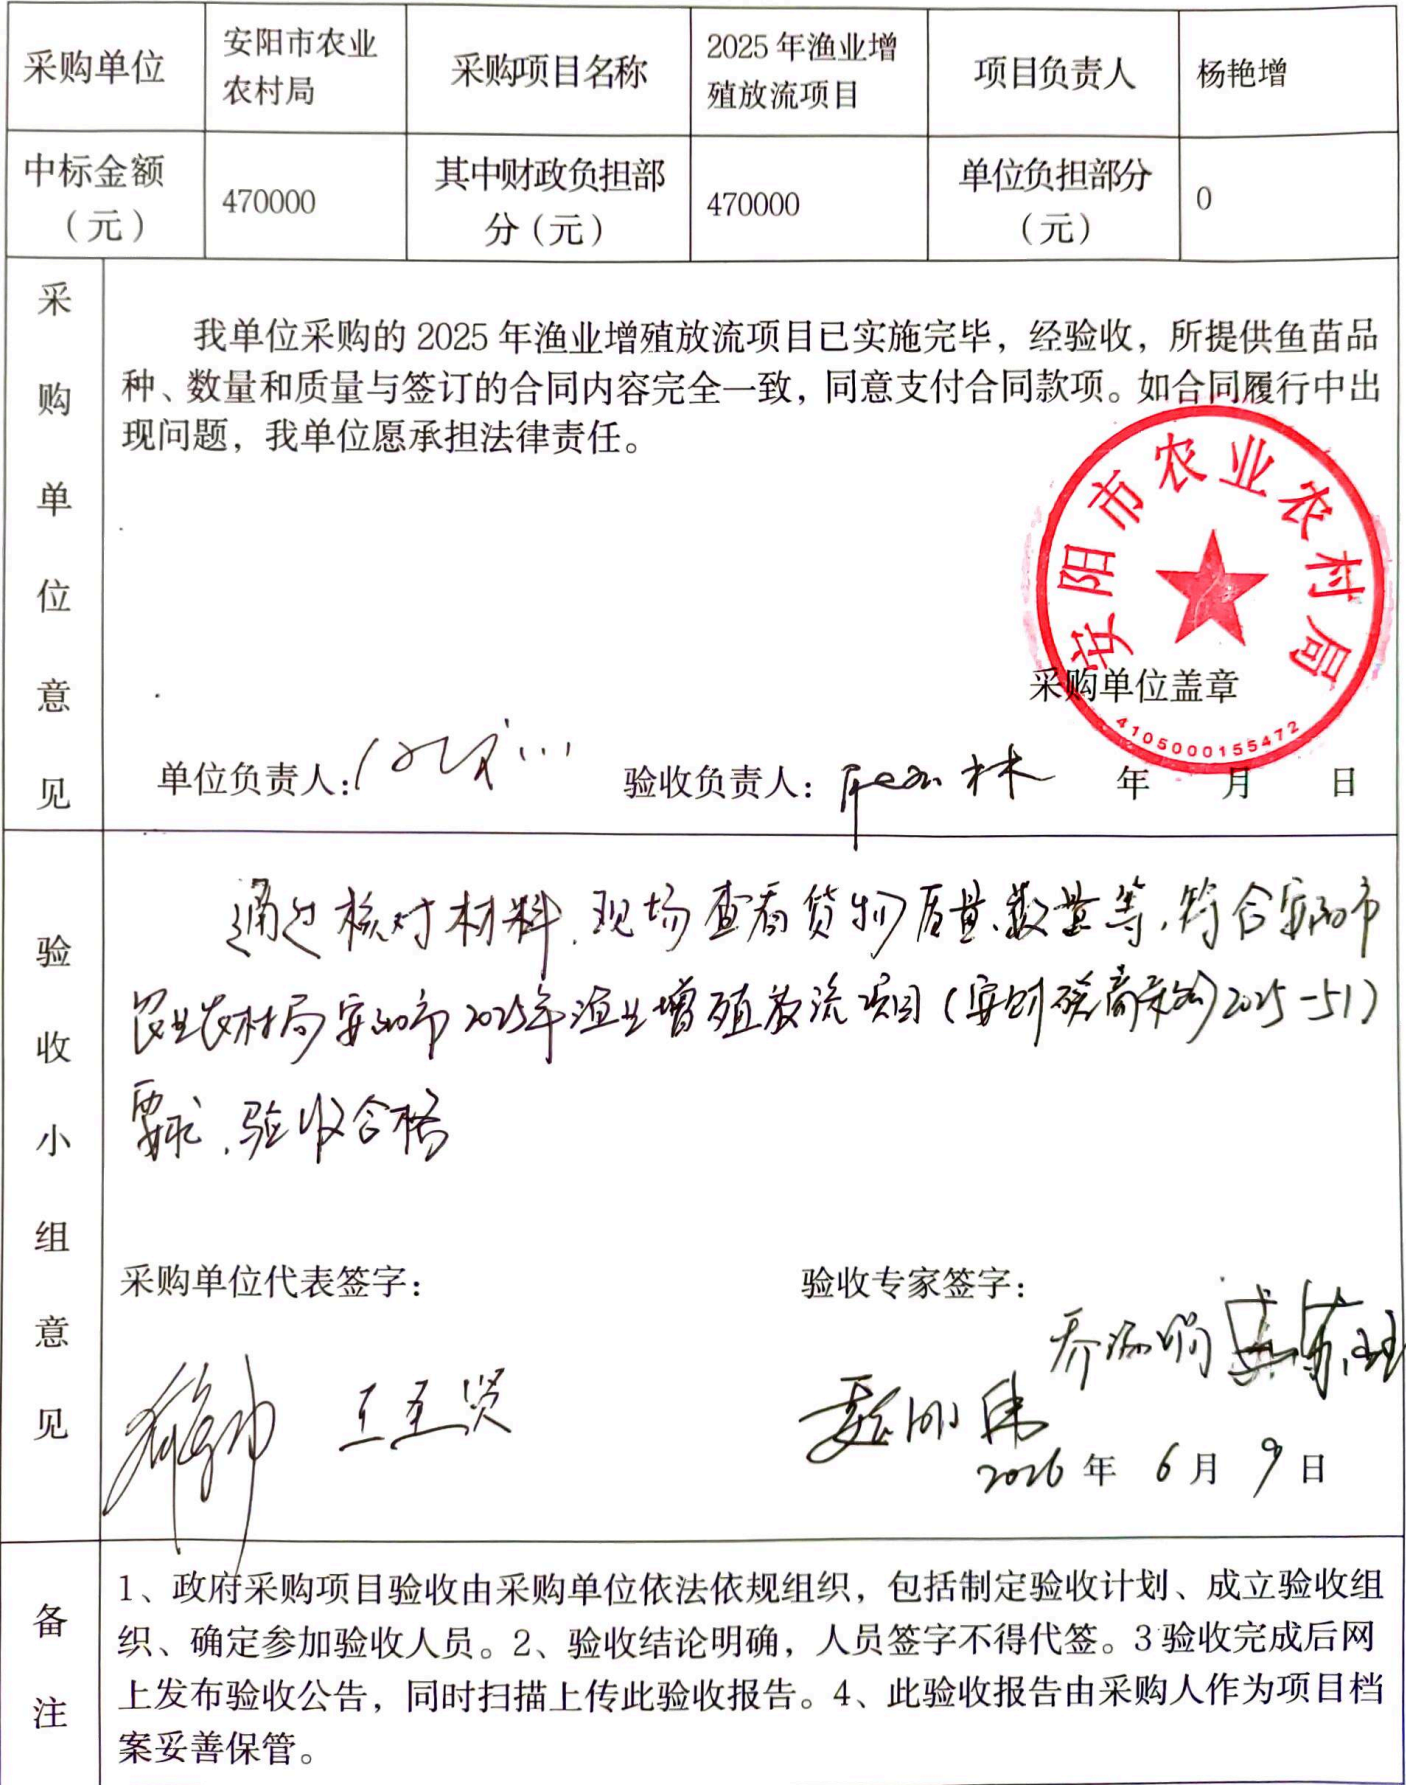 采购单位
安阳市农业
农村局
采购项目名称
2025 年渔业增
殖放流项目
项目负责人
杨艳增
中标金额
（元）
470000
其中财政负担部
分（元）
470000
单位负担部分
（元）
0
采购单位意见
我单位采购的 2025 年渔业增殖放流项目已实施完毕，经验收，所提供鱼苗品
种、数量和质量与签订的合同内容完全一致，同意支付合同款项。如合同履行中出
现问题，我单位愿承担法律责任。
安阳市农业农村局
4105000155472
采购单位盖章
单位负责人：
验收负责人： 林 年 月 日
验收小组意见
通过核对材料、现场查看货物质量、数量等，符合安阳市
农业农村局安阳市2025年渔业增殖放流项目（安财磋商采购2025-51）
要求，验收合格
采购单位代表签字：
验收专家签字：
王至贤
2026 年 6 月 9 日
备注
1、政府采购项目验收由采购单位依法依规组织，包括制定验收计划、成立验收组
织、确定参加验收人员。2、验收结论明确，人员签字不得代签。3 验收完成后网
上发布验收公告，同时扫描上传此验收报告。4、此验收报告由采购人作为项目档
案妥善保管。